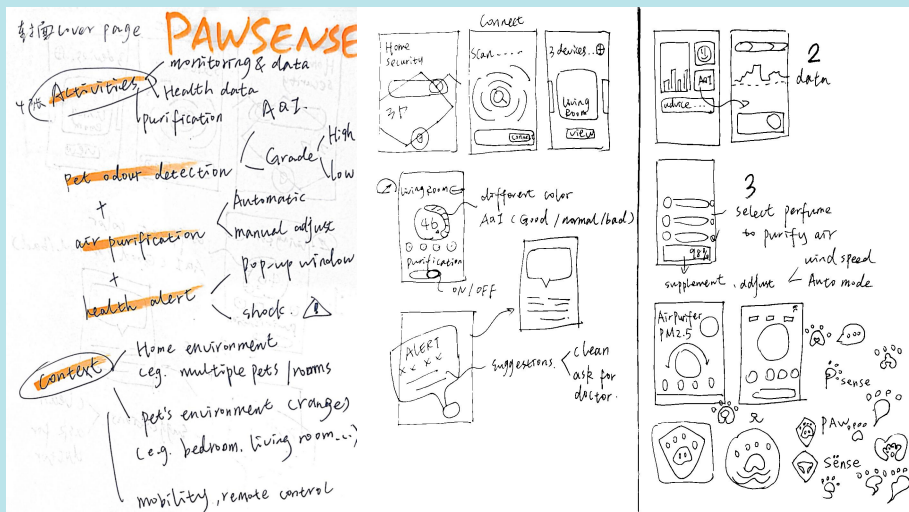 封面cover page
PAWSENSE
Activities
monitoring & data
Health data
purification
AQI.
pet odour detection
Grade
High
Low
+
air purification
Automatic
manual adjust
+
health alert
pop-up window
shock.
Context
Home environment
(e.g. multiple pets / rooms
pet's environment (ranges)
(e.g. bedroom, living room...)
mobility, remote control
Connect
Home
Security
Scan.....
connect
3 devices..
Living
Room
View
Living Room
46
Purification
ON/OFF
different color
AQI (Good / normal / bad)
ALERT
x x x x
Suggestions.
clean
ask for
doctor.
AQI
advice...
2
data
3
Select perfume
to purify air
98%
supplement. adjust
wind speed
Auto mode
Air Purifer
PM2.5
P.sense
PAW
Sense